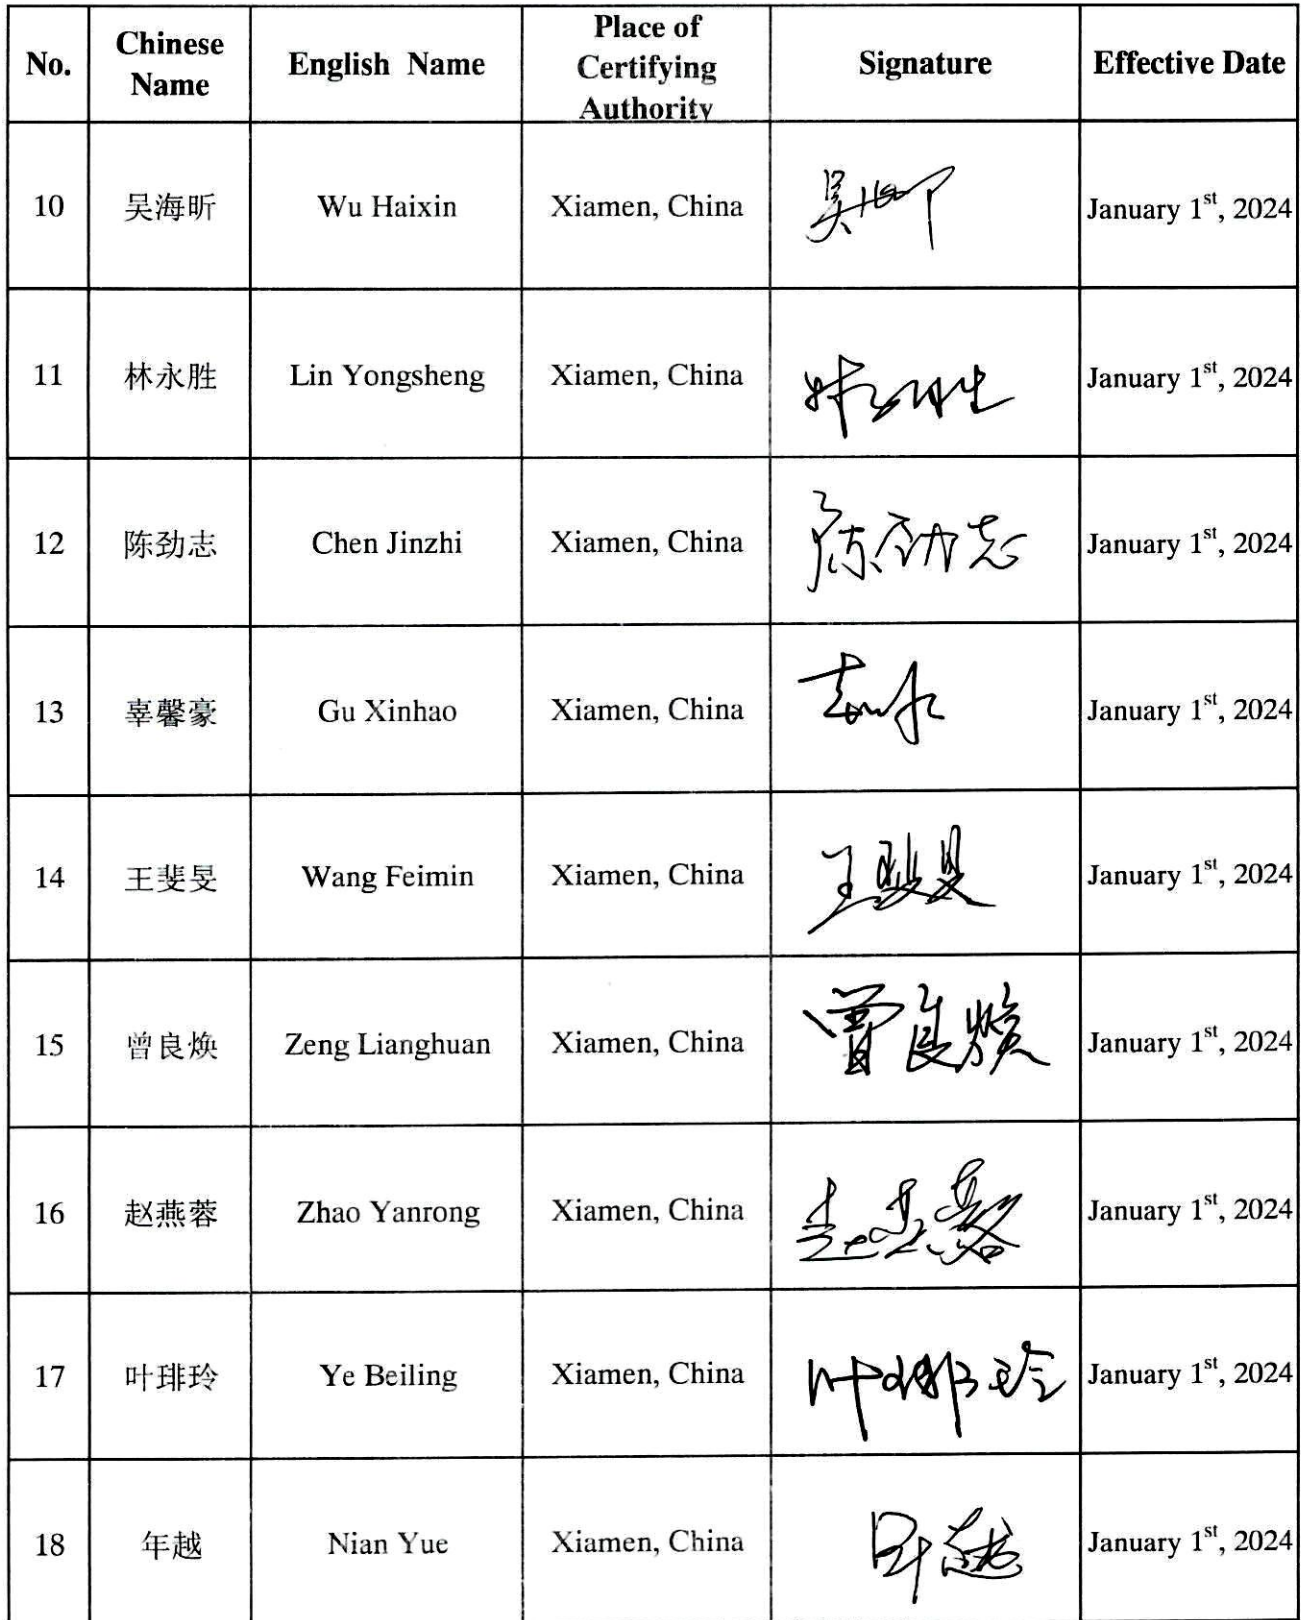 No. Chinese Name English Name Place of Certifying Authority Signature Effective Date
10 吴海昕 Wu Haixin Xiamen, China January 1st, 2024
11 林永胜 Lin Yongsheng Xiamen, China January 1st, 2024
12 陈劲志 Chen Jinzhi Xiamen, China 陈劲志 January 1st, 2024
13 辜馨豪 Gu Xinhao Xiamen, China January 1st, 2024
14 王斐旻 Wang Feimin Xiamen, China 王斐旻 January 1st, 2024
15 曾良焕 Zeng Lianghuan Xiamen, China 曾良焕 January 1st, 2024
16 赵燕蓉 Zhao Yanrong Xiamen, China January 1st, 2024
17 叶琲玲 Ye Beiling Xiamen, China January 1st, 2024
18 年越 Nian Yue Xiamen, China January 1st, 2024